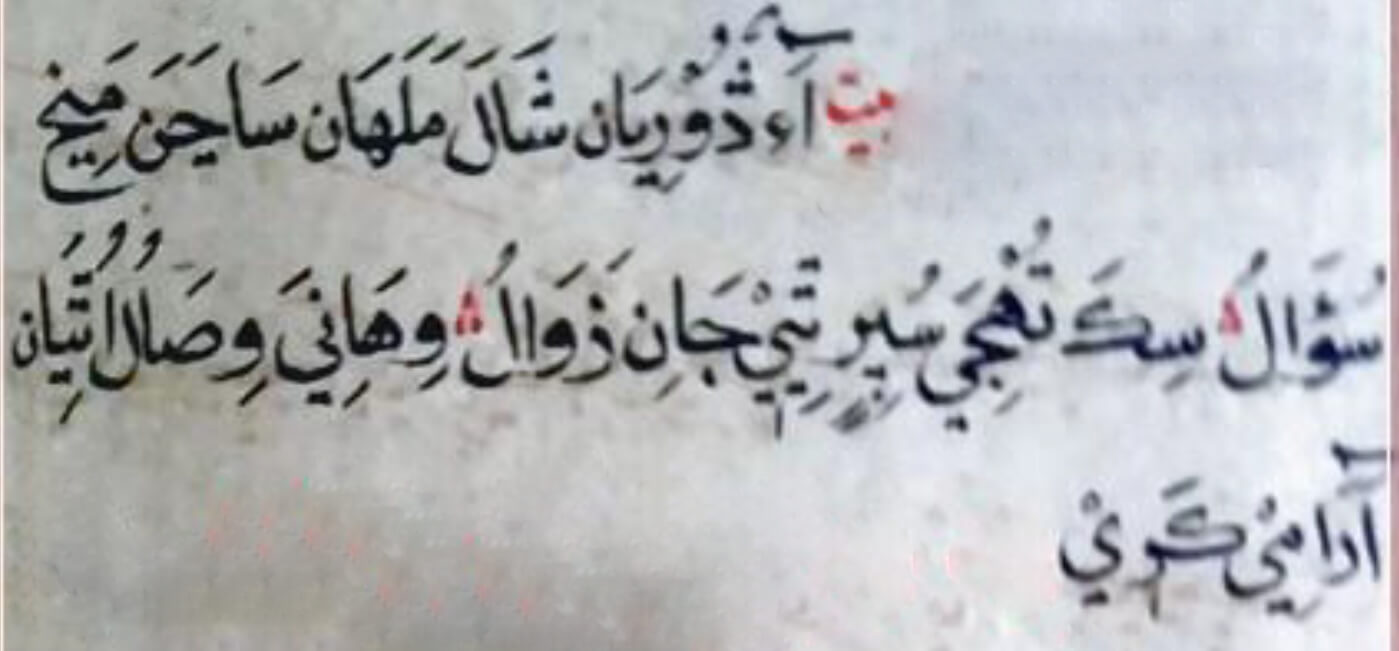 بيت آءُ ڎُورِيَان شَالَ مَلَهَان سَاجَن مَنِجِ
سُؤَالُ سِكَ تُهْجِي سُيرِ تِيْ جَانِ ذَوَالُ وِهَانِيَ وِصَالُ اُتِيَان
آرَامِيْ كَرِيْ